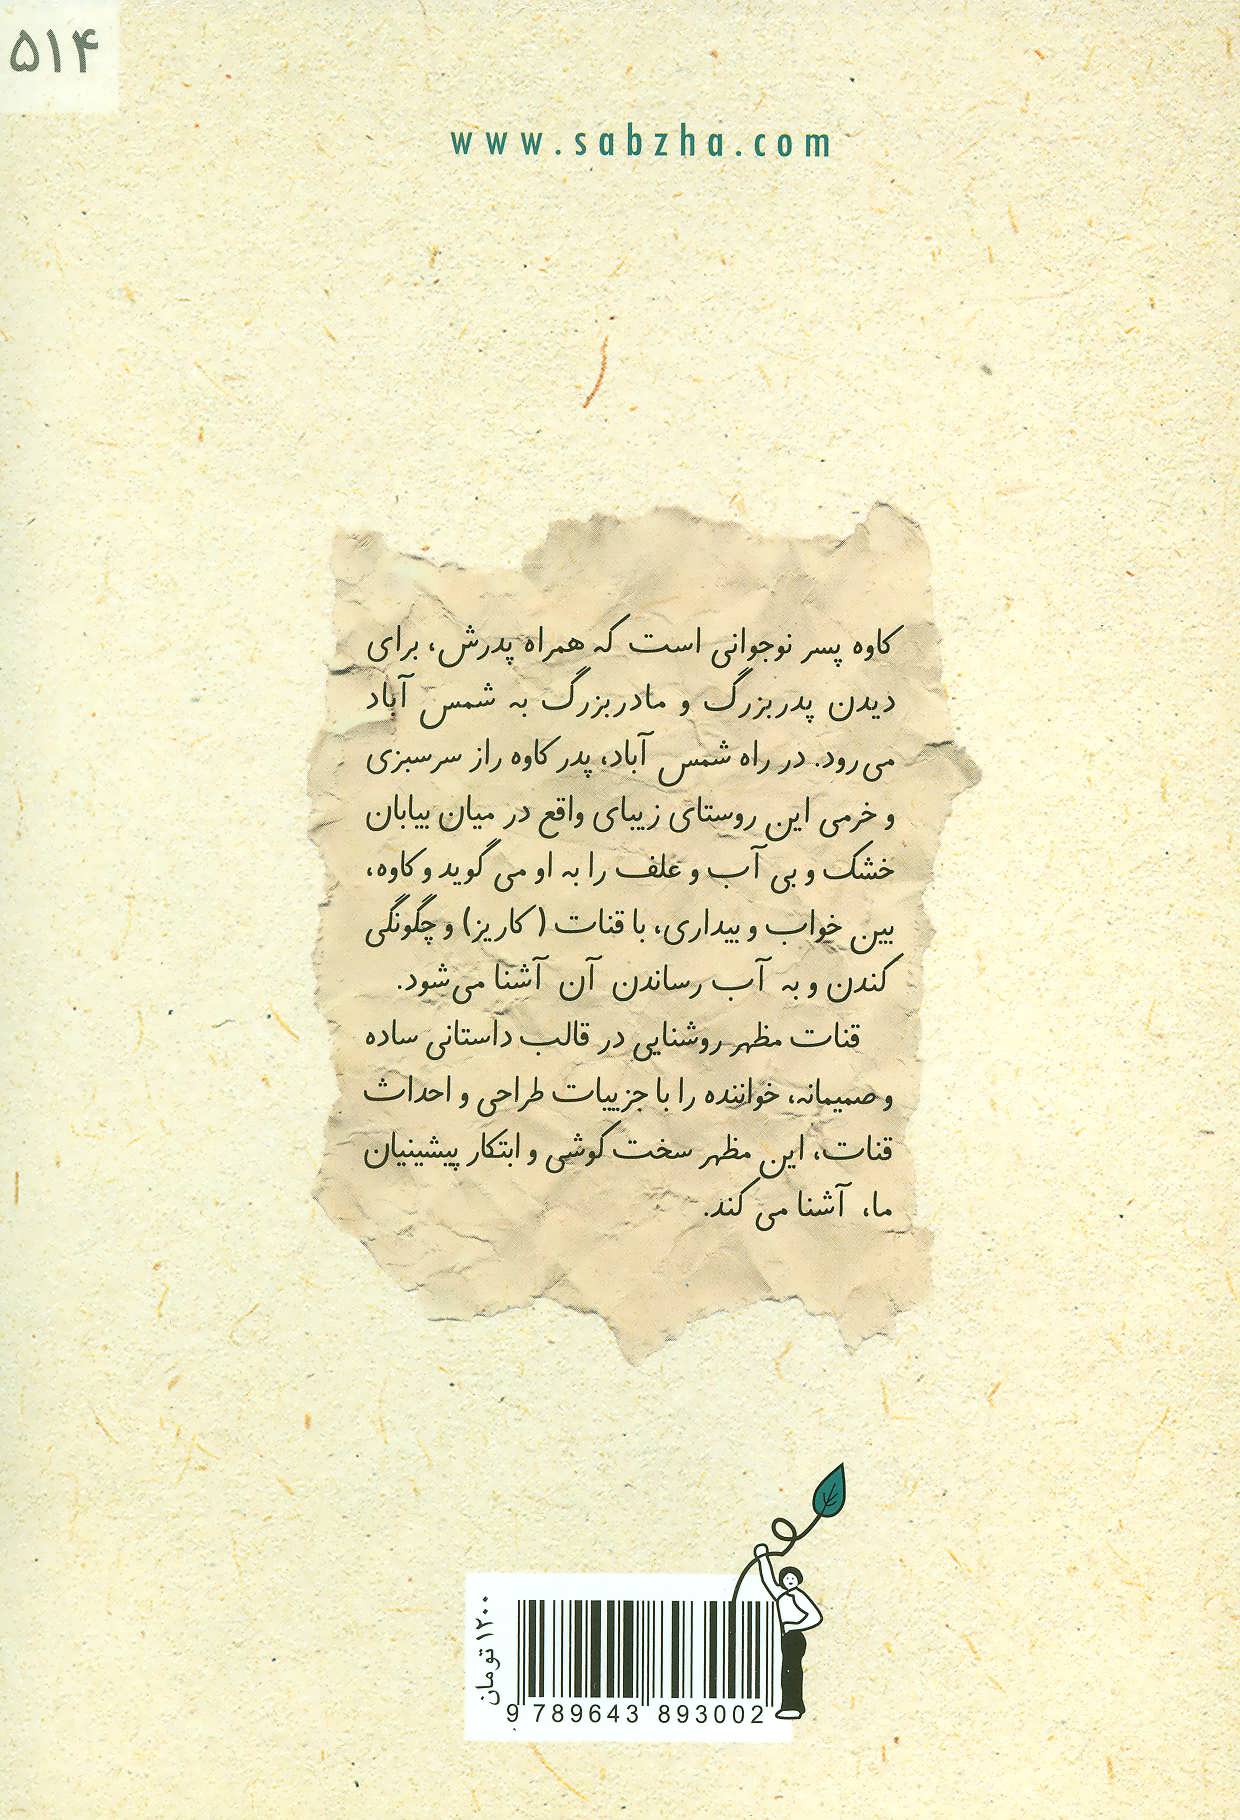 ۵۱۴
www.sabzha.com
کاوه پسر نوجوانی است که همراه پدرش، برای
دیدن پدربزرگ و مادربزرگ به شمس آباد
می‌رود. در راه شمس آباد، پدر کاوه راز سرسبزی
و خرمی این روستای زیبای واقع در میان بیابان
خشک و بی آب و علف را به او می گوید و کاوه،
بین خواب و بیداری، با قنات (کاریز) و چگونگی
کندن و به آب رساندن آن آشنا می‌شود.
قنات مظهر روشنایی در قالب داستانی ساده
و صمیمانه، خواننده را با جزییات طراحی و احداث
قنات، این مظهر سخت کوشی و ابتکار پیشینیان
ما، آشنا می کند.
۱۲۰۰ تومان
9 789643 893002